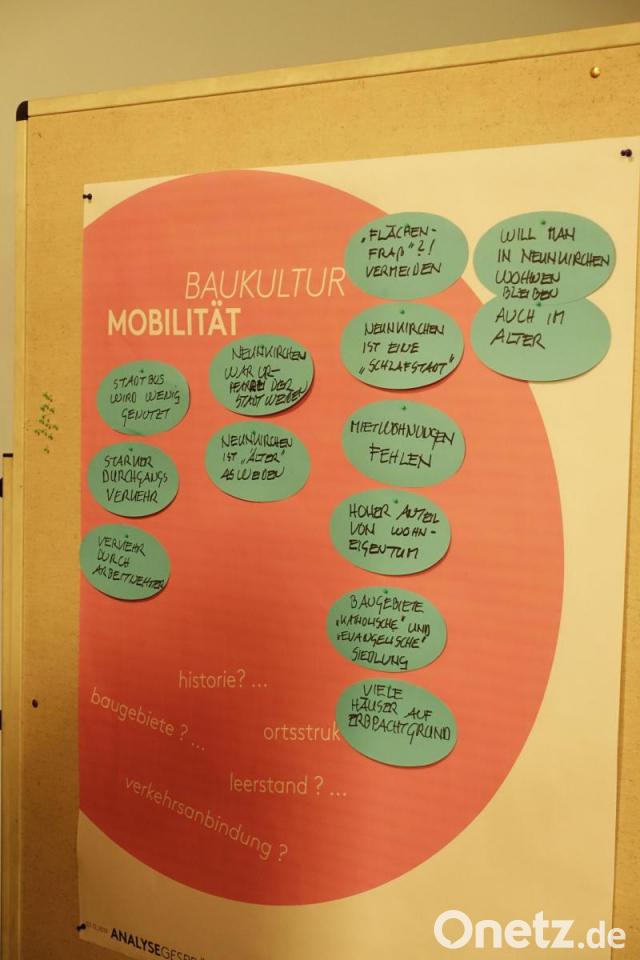 BAUKULTUR
MOBILITÄT
STADTBUS
WIRD WENIG
GENUTZT
STARKER
DURCHGANGS
VERKEHR
VERKEHR
DURCH
ARBEITNEHMER
NEUNKIRCHEN
WAR UR-
PFARREI DER
STADT WEIDEN
NEUNKIRCHEN
IST "ÄLTER"
ALS WEIDEN
„FLÄCHEN-
FRAß"?!
VERMEIDEN
NEUNKIRCHEN
IST EINE
„SCHLAFSTADT"
MIETWOHNUNGEN
FEHLEN
HOHER ANTEIL
VON WOHN-
EIGENTUM
BAUGEBIETE
„KATHOLISCHE" UND
„EVANGELISCHE"
SIEDLUNG
VIELE
HÄUSER AUF
ERBPACHTGRUND
WILL MAN
IN NEUNKIRCHEN
WOHNEN
BLEIBEN
AUCH IM
ALTER
historie? ...
baugebiete ? ...
ortsstruk
leerstand ? ...
verkehrsanbindung ?
ANALYSEGESPRÄ
Onetz.de